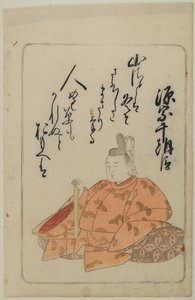 源宗于朝臣
山里は
冬そ
さひしさ
まさり
ける
人めも草も
かれぬと
おもへは